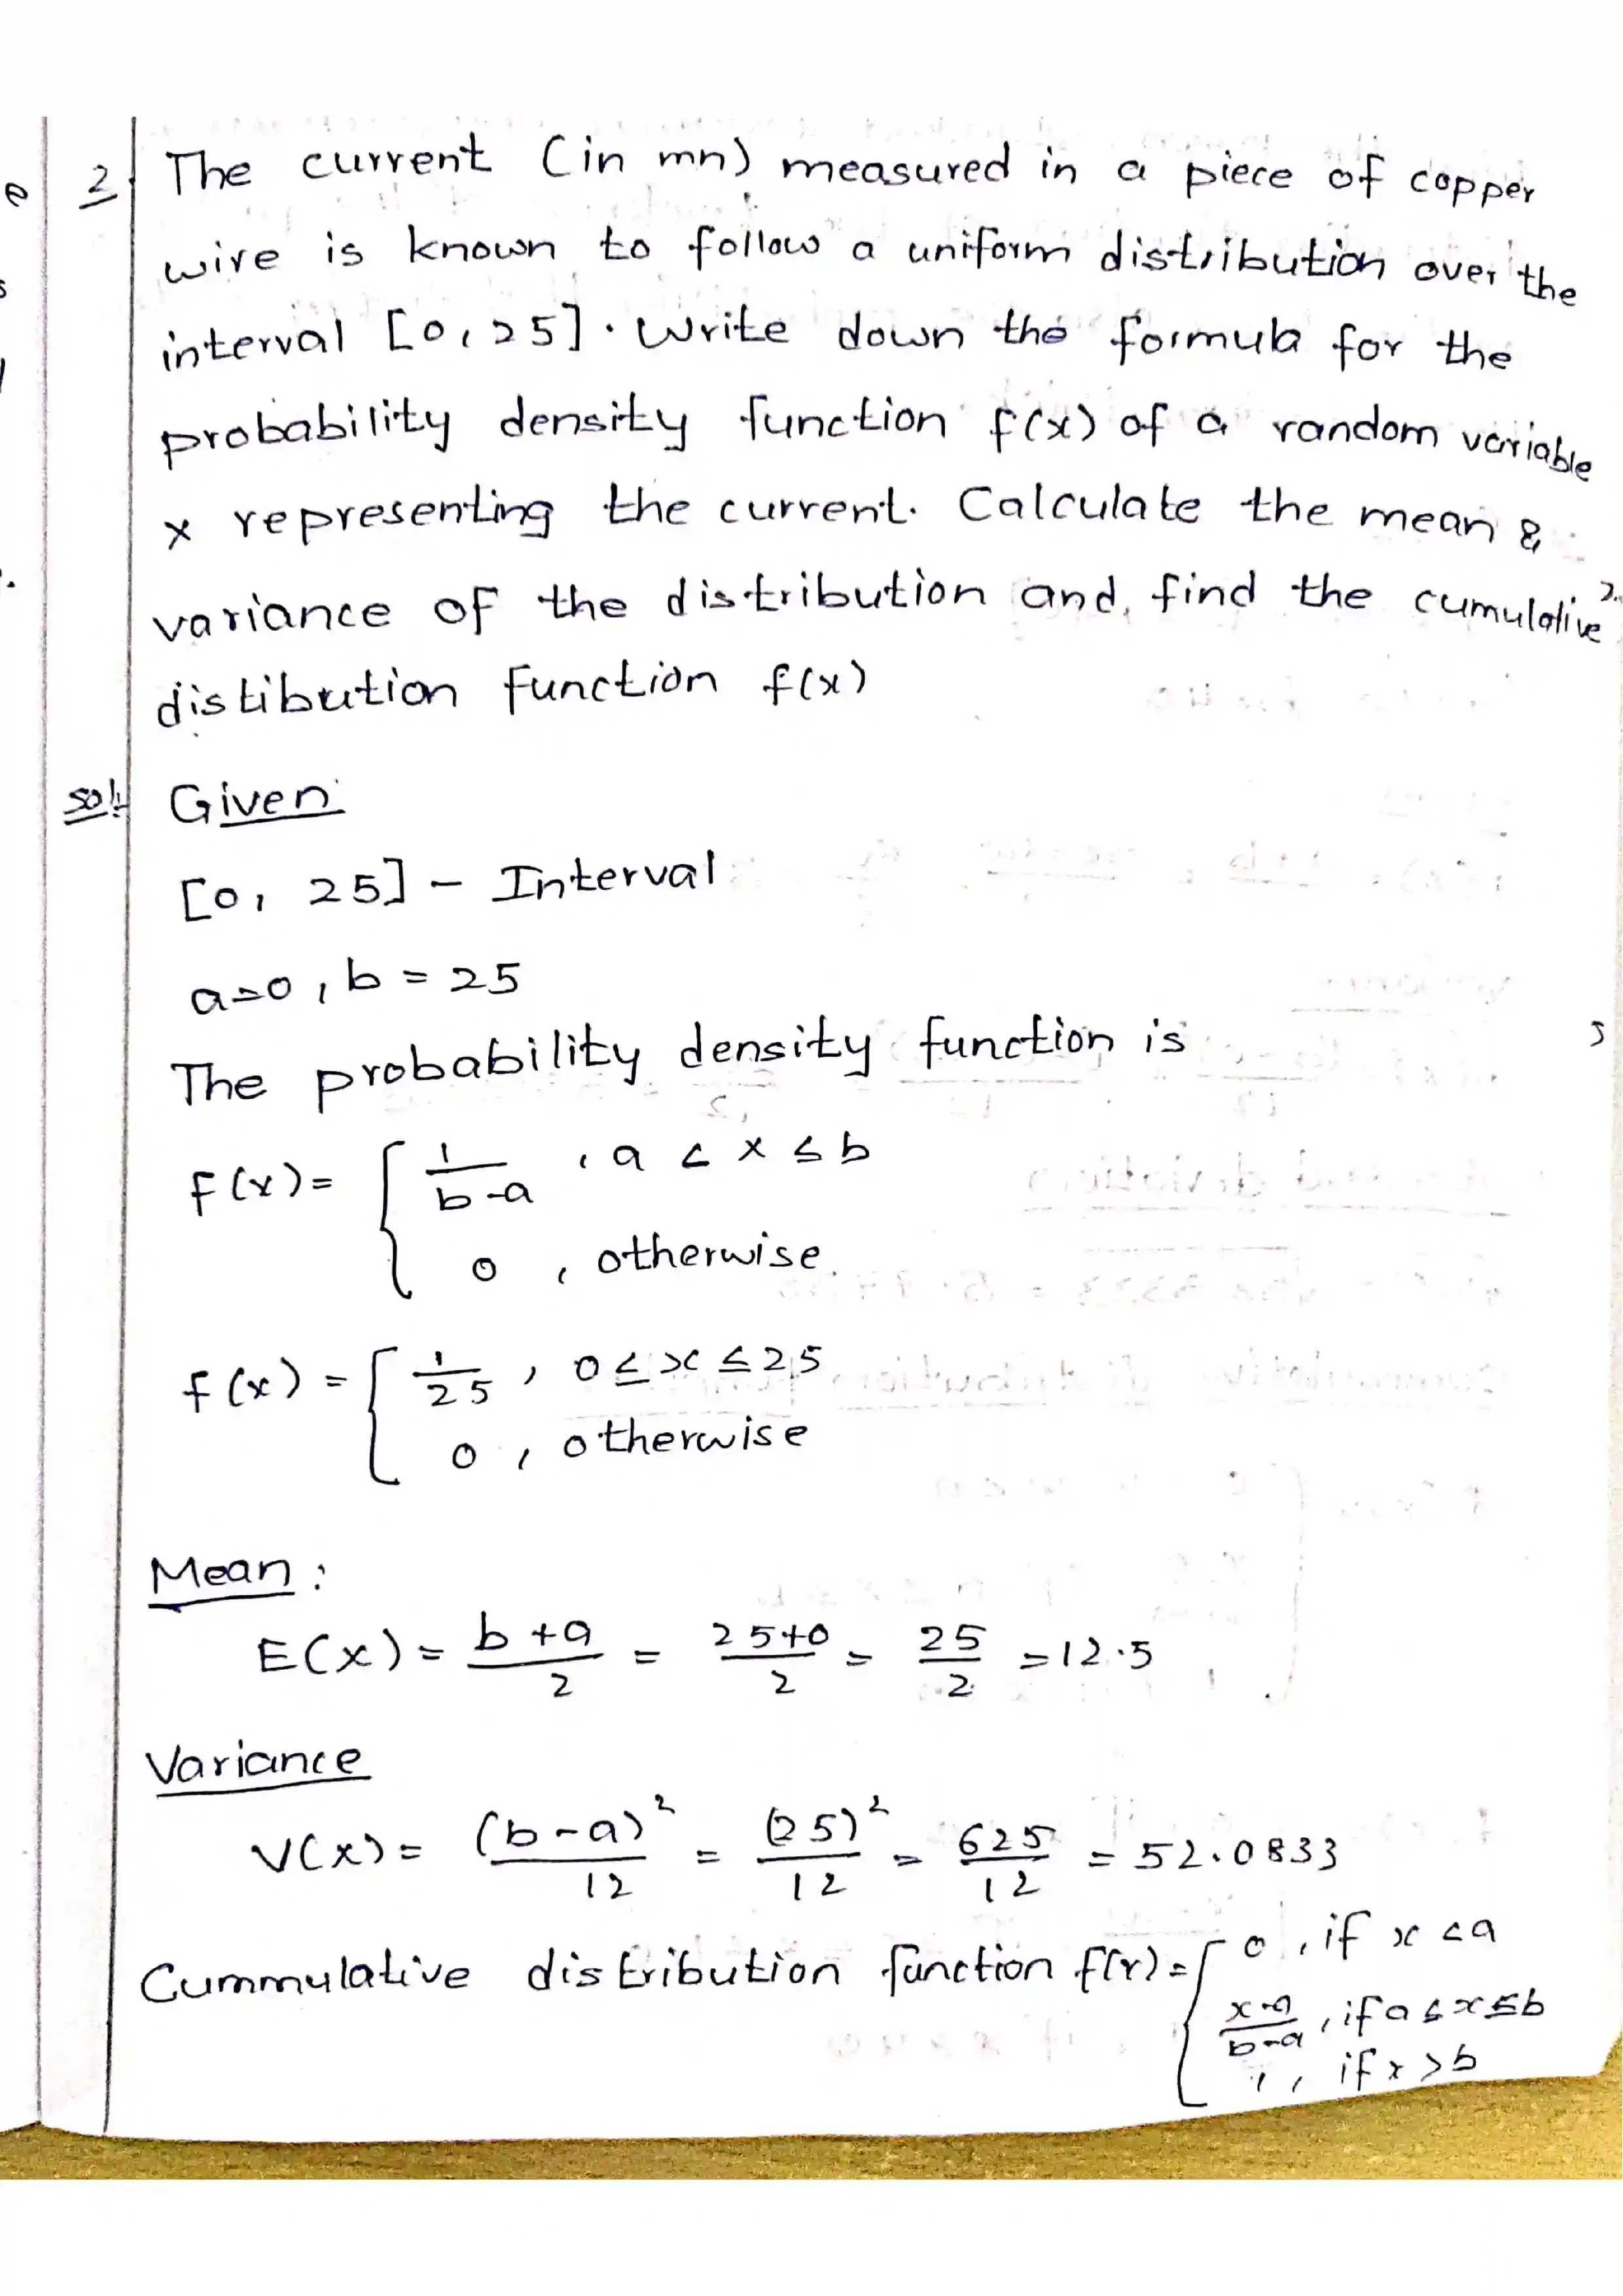 2 The current (in mn) measured in a piece of copper
wire is known to follow a uniform distribution over the
interval [0,25]. Write down the formula for the
probability density function f(x) of a random variable
x representing the current. Calculate the mean &
variance of the distribution and, find the cumulative
distibution function f(x)
sol: Given
[0, 25] - Interval
a=0, b = 25
The probability density function is
F(x)= { 1/(b-a) , a < x ≤ b
0 , otherwise
f(x) = { 1/25 , 0 ≤ x ≤ 25
0 , otherwise
Mean :
E(x) = (b+a)/2 = (25+0)/2 = 25/2 = 12.5
Variance
V(x) = (b-a)²/12 = (25)²/12 = 625/12 = 52.0833
Cummulative distribution function f(x) = { 0 , if x < a
(x-a)/(b-a) , if a ≤ x ≤ b
1 , if x > b